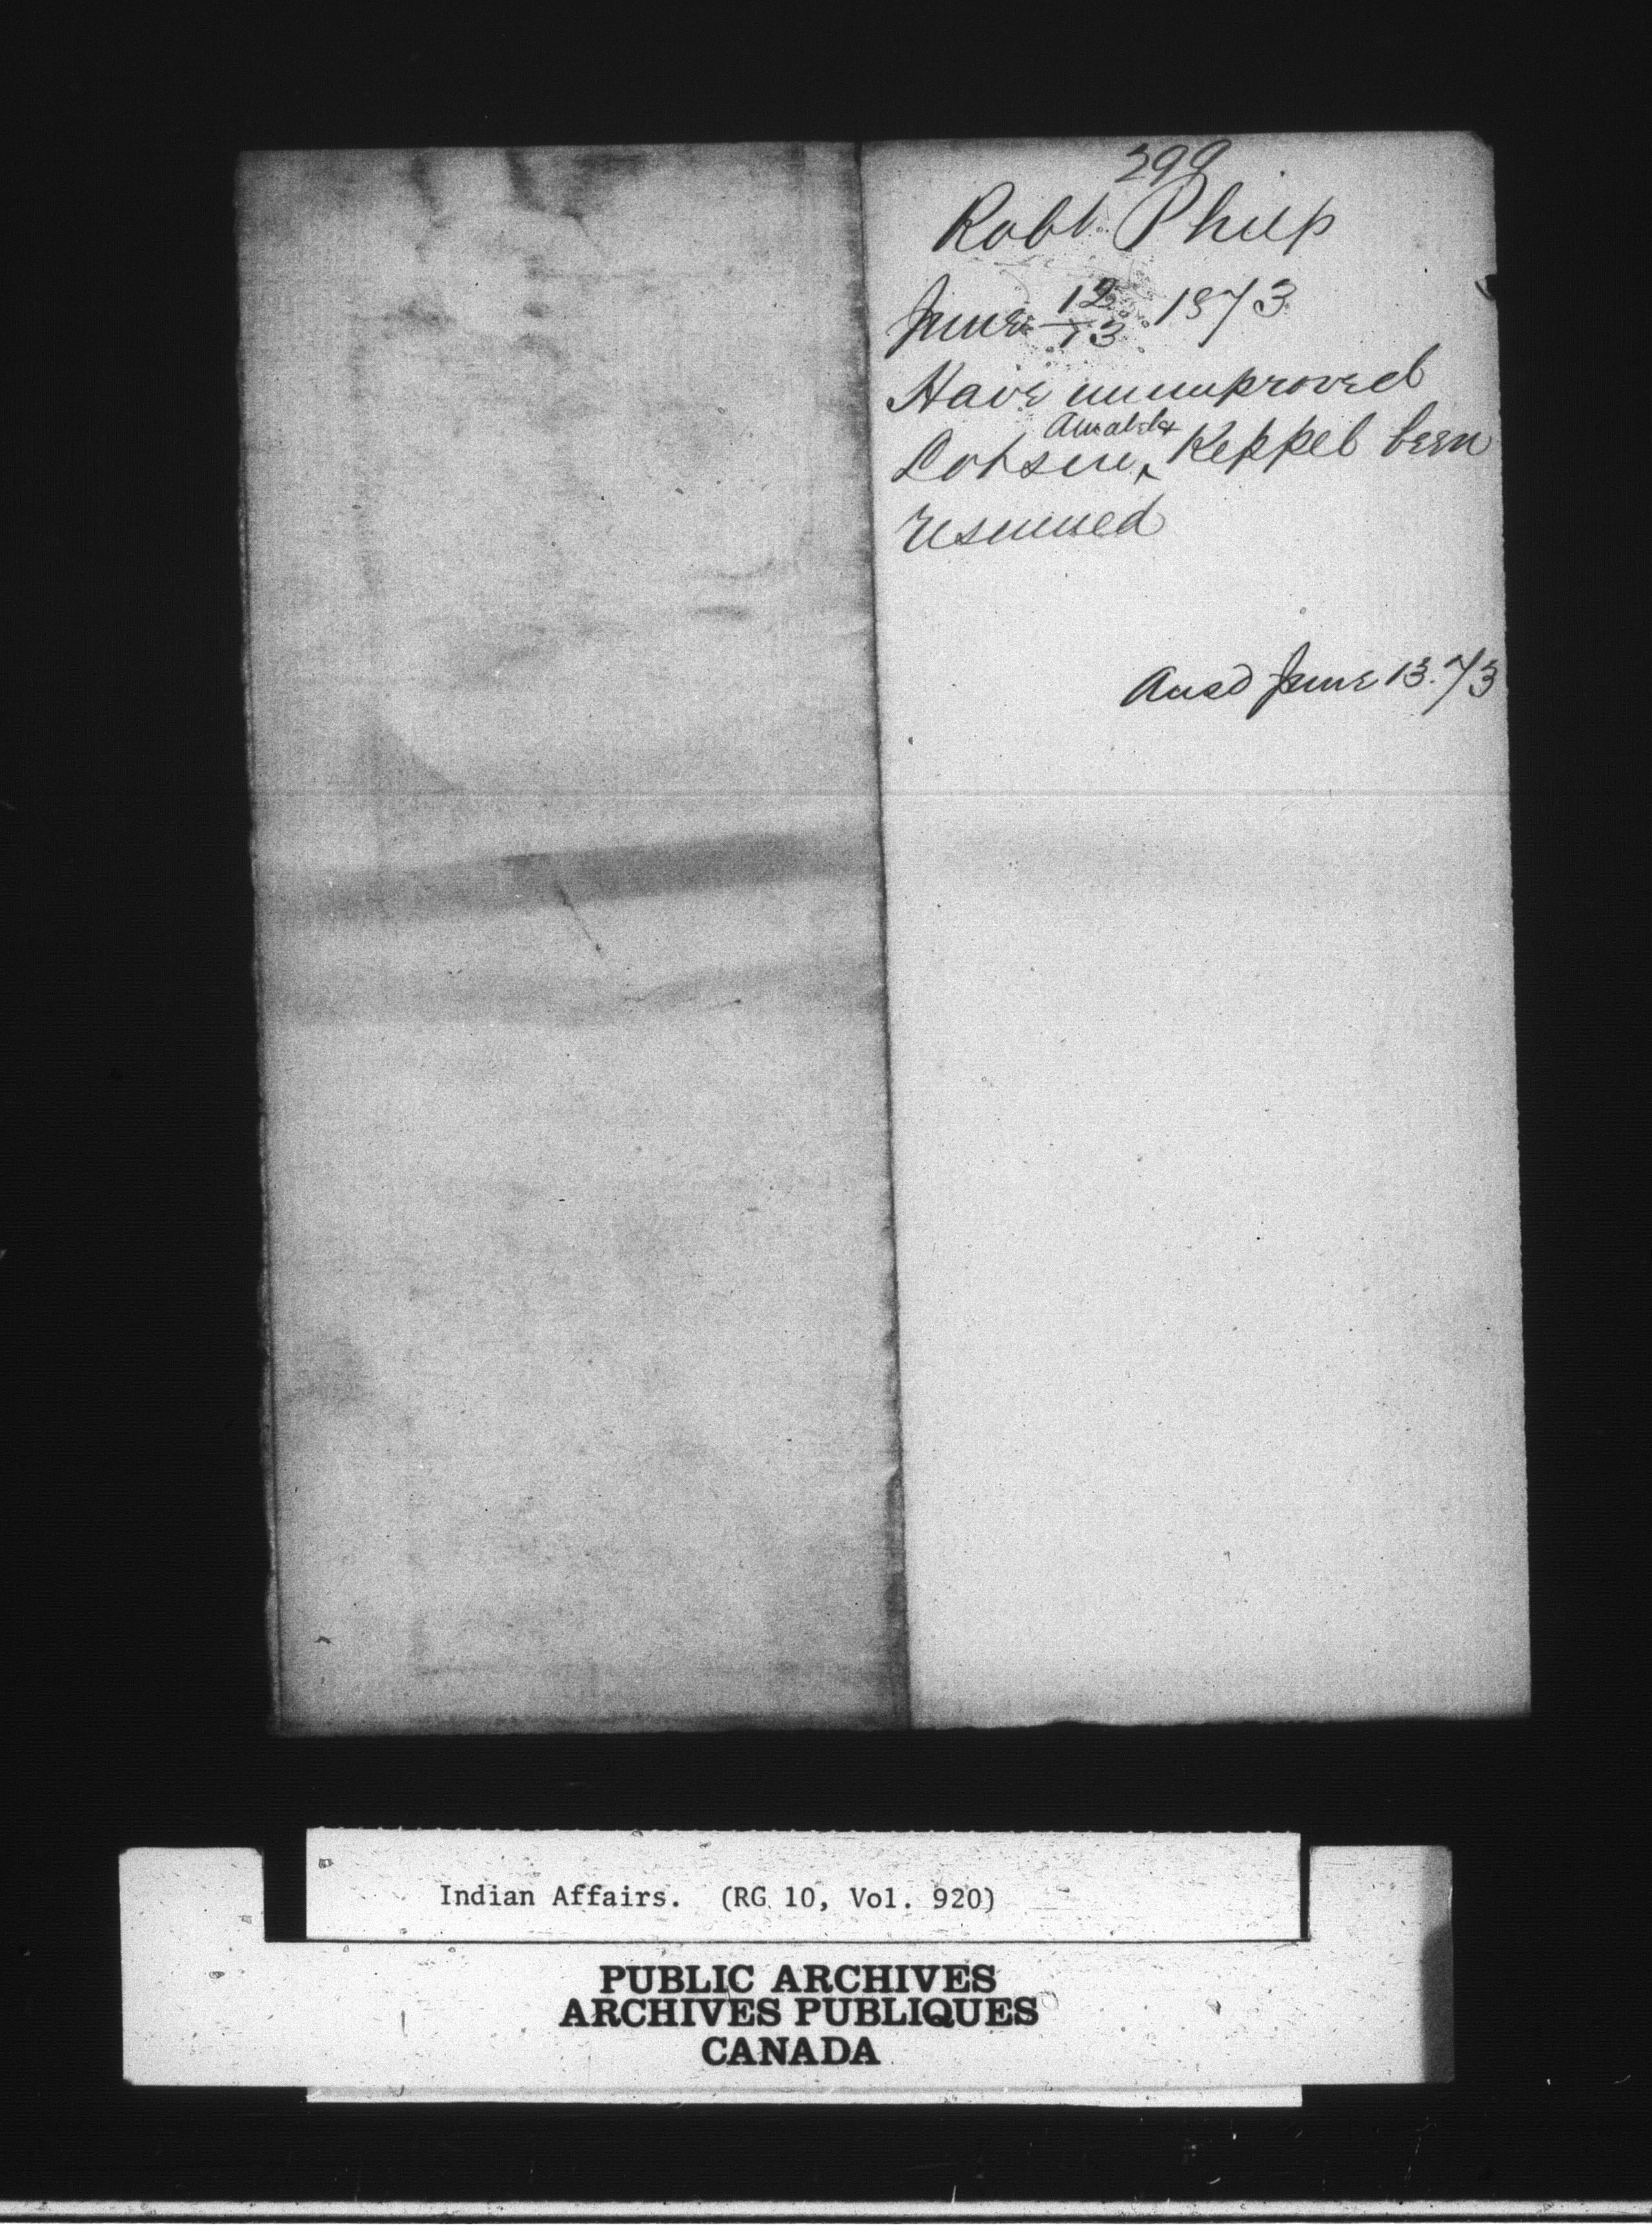 299
Robt. Philp
June 12/13 1873
Have unimproved
Lots in ^ Amabel & Keppel been
resumed
Ansd June 13. 73
Indian Affairs. (RG 10, Vol. 920)
PUBLIC ARCHIVES
ARCHIVES PUBLIQUES
CANADA